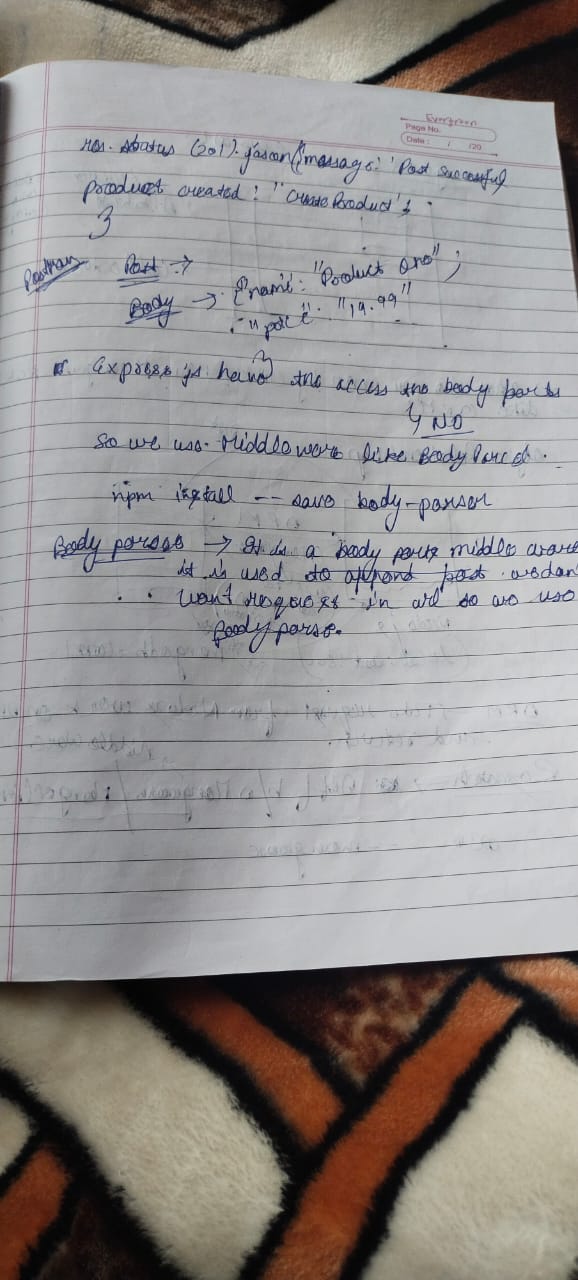 Evergreen
Page No.
Date: / /20
res. status (201). jason({message: 'Post successful,
product created: "Create Product"}
}
Postman Post →
Body → {name: "Product One";
"price": "19.99"
}
Express js have the access the body parts
↳ NO
So we use Middleware like Body Parse.
npm install -- save body-parser
Body parser → It is a body parts middle ware
it is used to append post
want request in so we use
Body parse.